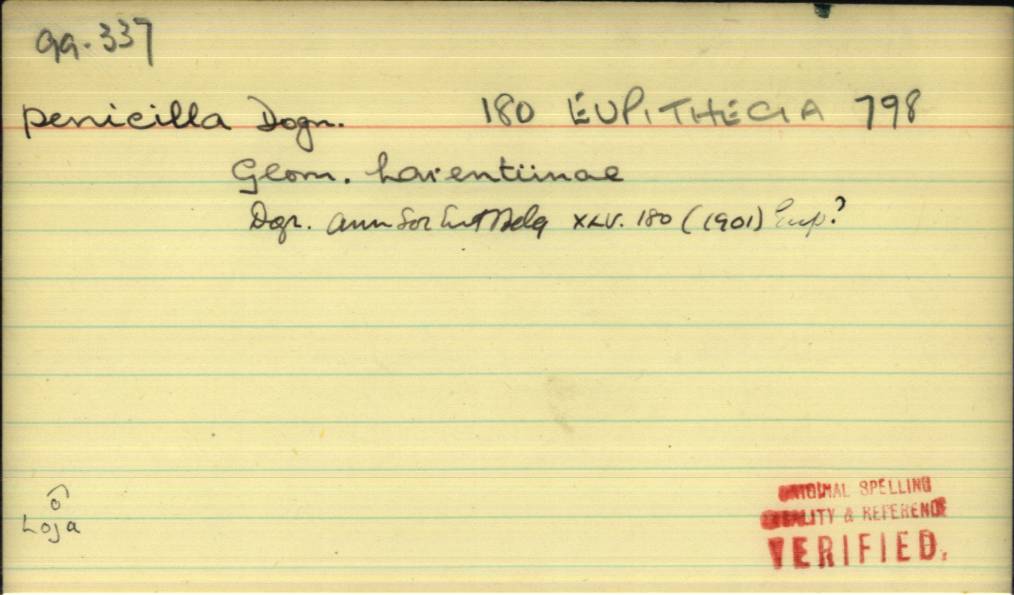 99.337
penicilla Dogn. 180 EUPITHECIA 798
Geom. Larentiinae
Dgn. Ann Soc Ent Belg XLV. 180 (1901) Eup?
♂
Loja
ORIGINAL SPELLING
LOCALITY & REFERENCE
VERIFIED.